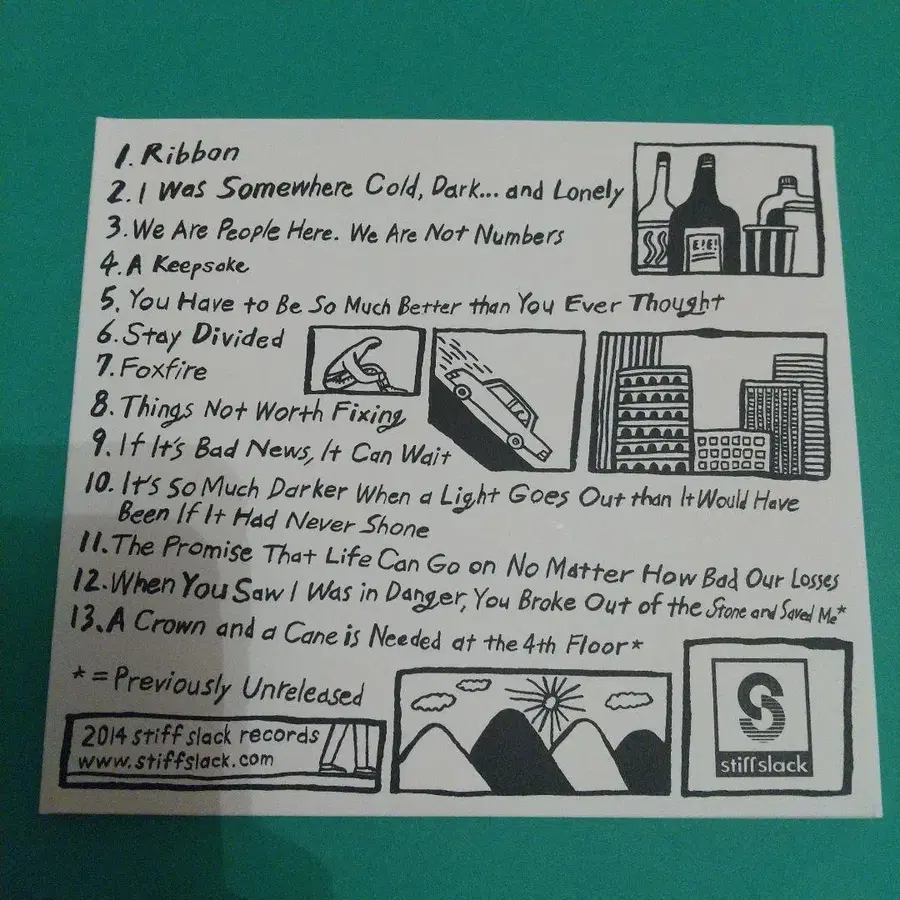 1. Ribbon
2. I Was Somewhere Cold, Dark... and Lonely
3. We Are People Here. We Are Not Numbers
4. A Keepsake
5. You Have to Be So Much Better than You Ever Thought
6. Stay Divided
7. Foxfire
8. Things Not Worth Fixing
9. If It's Bad News, It Can Wait
10. It's So Much Darker When a Light Goes Out than It Would Have
Been If It Had Never Shone
11. The Promise That Life Can Go on No Matter How Bad Our Losses
12. When You Saw I Was in Danger, You Broke Out of the Stone and Saved Me*
13. A Crown and a Cane is Needed at the 4th Floor*
* = Previously Unreleased
2014 stiff slack records
www.stiffslack.com
stiffslack
E!E!